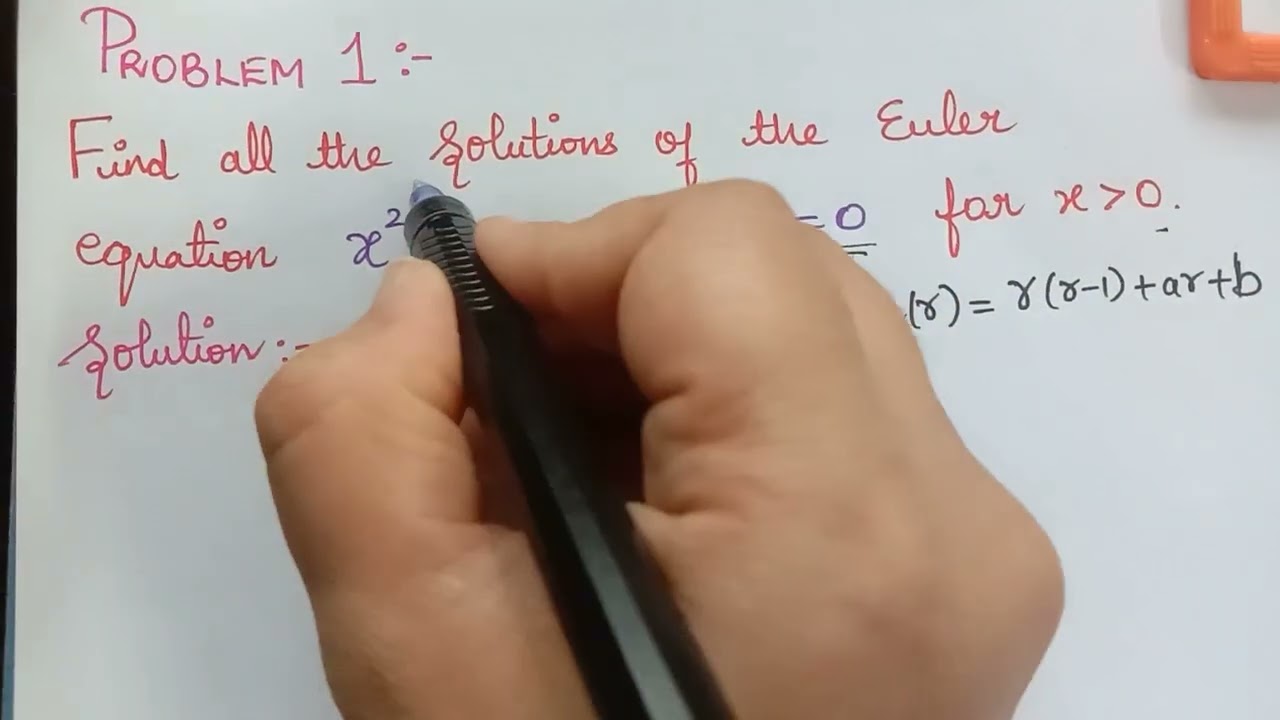 PROBLEM 1 :-
Find all the solutions of the Euler
equation x² = 0 for x > 0.
(r) = r(r-1) + ar + b
Solution :-